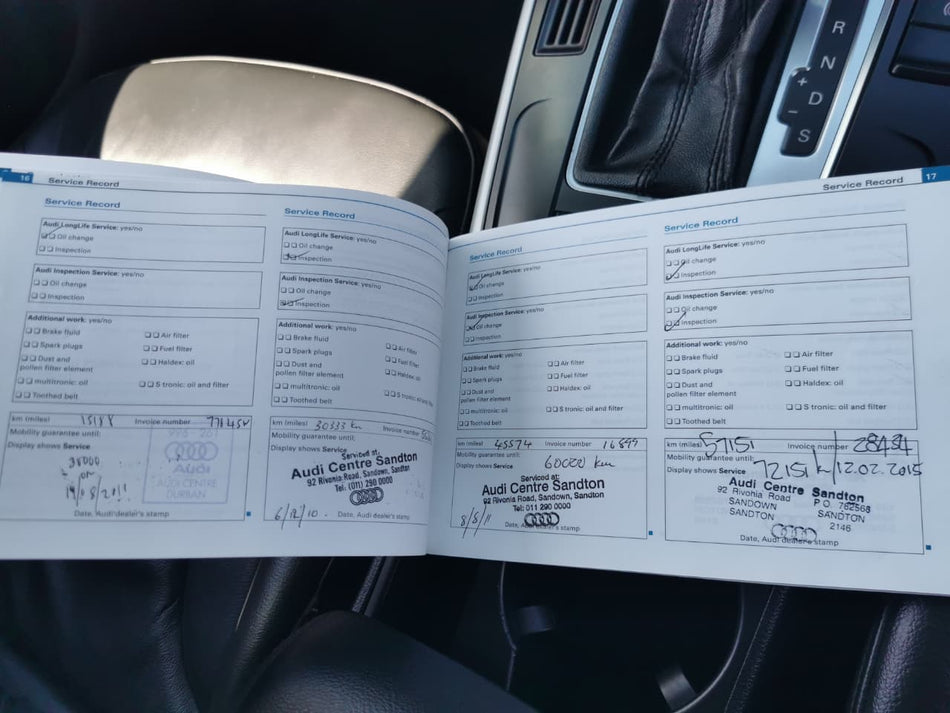 R
N
+
D
−
S
16
Service Record
Service Record
Audi LongLife Service: yes/no
Oil change
Inspection
Audi Inspection Service: yes/no
Oil change
Inspection
Additional work: yes/no
Brake fluid
Air filter
Spark plugs
Fuel filter
Dust and
pollen filter element
Haldex: oil
multitronic: oil
S tronic: oil and filter
Toothed belt
km (miles) 15188 Invoice number
Mobility guarantee until:
Display shows Service
30000
or
Audi
AUDI CENTRE
DURBAN
Date, Audi dealer's stamp
Service Record
Audi LongLife Service: yes/no
Oil change
Inspection
Audi Inspection Service: yes/no
Oil change
Inspection
Additional work: yes/no
Brake fluid
Air filter
Spark plugs
Fuel filter
Dust and
pollen filter element
Haldex: oil
multitronic: oil
S tronic: oil and
Toothed belt
km (miles) 30333 km Invoice number
Mobility guarantee until:
Display shows Service
Serviced at:
Audi Centre Sandton
92 Rivonia Road, Sandown, Sandton
Tel: (011) 290 0000
6/12/10
Date, Audi dealer's stamp
Service Record
17
Service Record
Audi LongLife Service: yes/no
Oil change
Inspection
Audi Inspection Service: yes/no
Oil change
Inspection
Additional work: yes/no
Brake fluid
Air filter
Spark plugs
Fuel filter
Dust and
pollen filter element
Haldex: oil
multitronic: oil
S tronic: oil and filter
Toothed belt
km (miles) 45574 Invoice number 16899
Mobility guarantee until:
Display shows Service 60000 km
Serviced at:
Audi Centre Sandton
92 Rivonia Road, Sandown, Sandton
Tel: 011 290 0000
8/5/11
Date, Audi dealer's stamp
Service Record
Audi LongLife Service: yes/no
Oil change
Inspection
Audi Inspection Service: yes/no
Oil change
Inspection
Additional work: yes/no
Brake fluid
Air filter
Spark plugs
Fuel filter
Dust and
pollen filter element
Haldex: oil
multitronic: oil
S tronic: oil and filter
Toothed belt
km (miles) 57151 Invoice number
Mobility guarantee until:
Display shows Service 72151 km/12.02.2015
Audi Centre Sandton
92 Rivonia Road P.O. 782568
SANDOWN SANDTON
SANDTON 2146
Date, Audi dealer's stamp